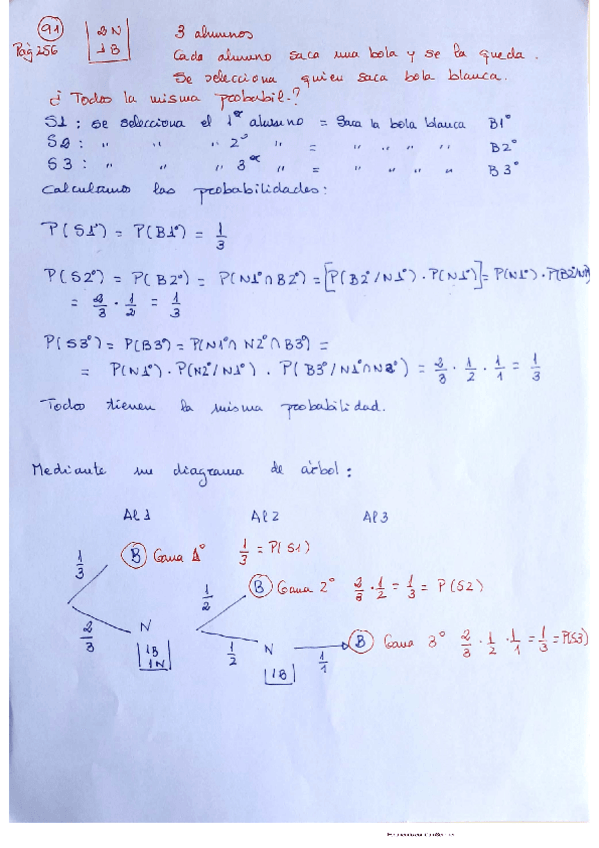 91
Pág 256
2N
1B
3 alumnos
Cada alumno saca una bola y se la queda.
Se selecciona quien saca bola blanca.
¿Todos la misma probabil.?
S1: se selecciona el 1er alumno = Saca la bola blanca B1º
S2: " " " 2º " = " " " " B2º
S3: " " " 3er " = " " " " B3º
Calculamos las probabilidades:
P(S1º) = P(B1º) = 1/3
P(S2º) = P(B2º) = P(N1º∩B2º) = [P(B2º/N1º) · P(N1º)] = P(N1º) · P(B2º/N1º)
= 2/3 · 1/2 = 1/3
P(S3º) = P(B3º) = P(N1º∩N2º∩B3º) =
= P(N1º) · P(N2º/N1º) · P(B3º/N1º∩N2º) = 2/3 · 1/2 · 1/1 = 1/3
Todos tienen la misma probabilidad.
Mediante un diagrama de árbol:
Al1 Al2 Al3
1/3 B Gana 1º 1/3 = P(S1)
1/2 B Gana 2º 2/3 · 1/2 = 1/3 = P(S2)
2/3 N 1B 1N
1/2 N 1B 1/1 B Gana 3º 2/3 · 1/2 · 1/1 = 1/3 = P(S3)